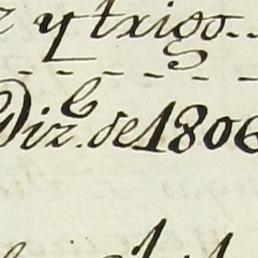 y trigo..
Diz.e de 1806